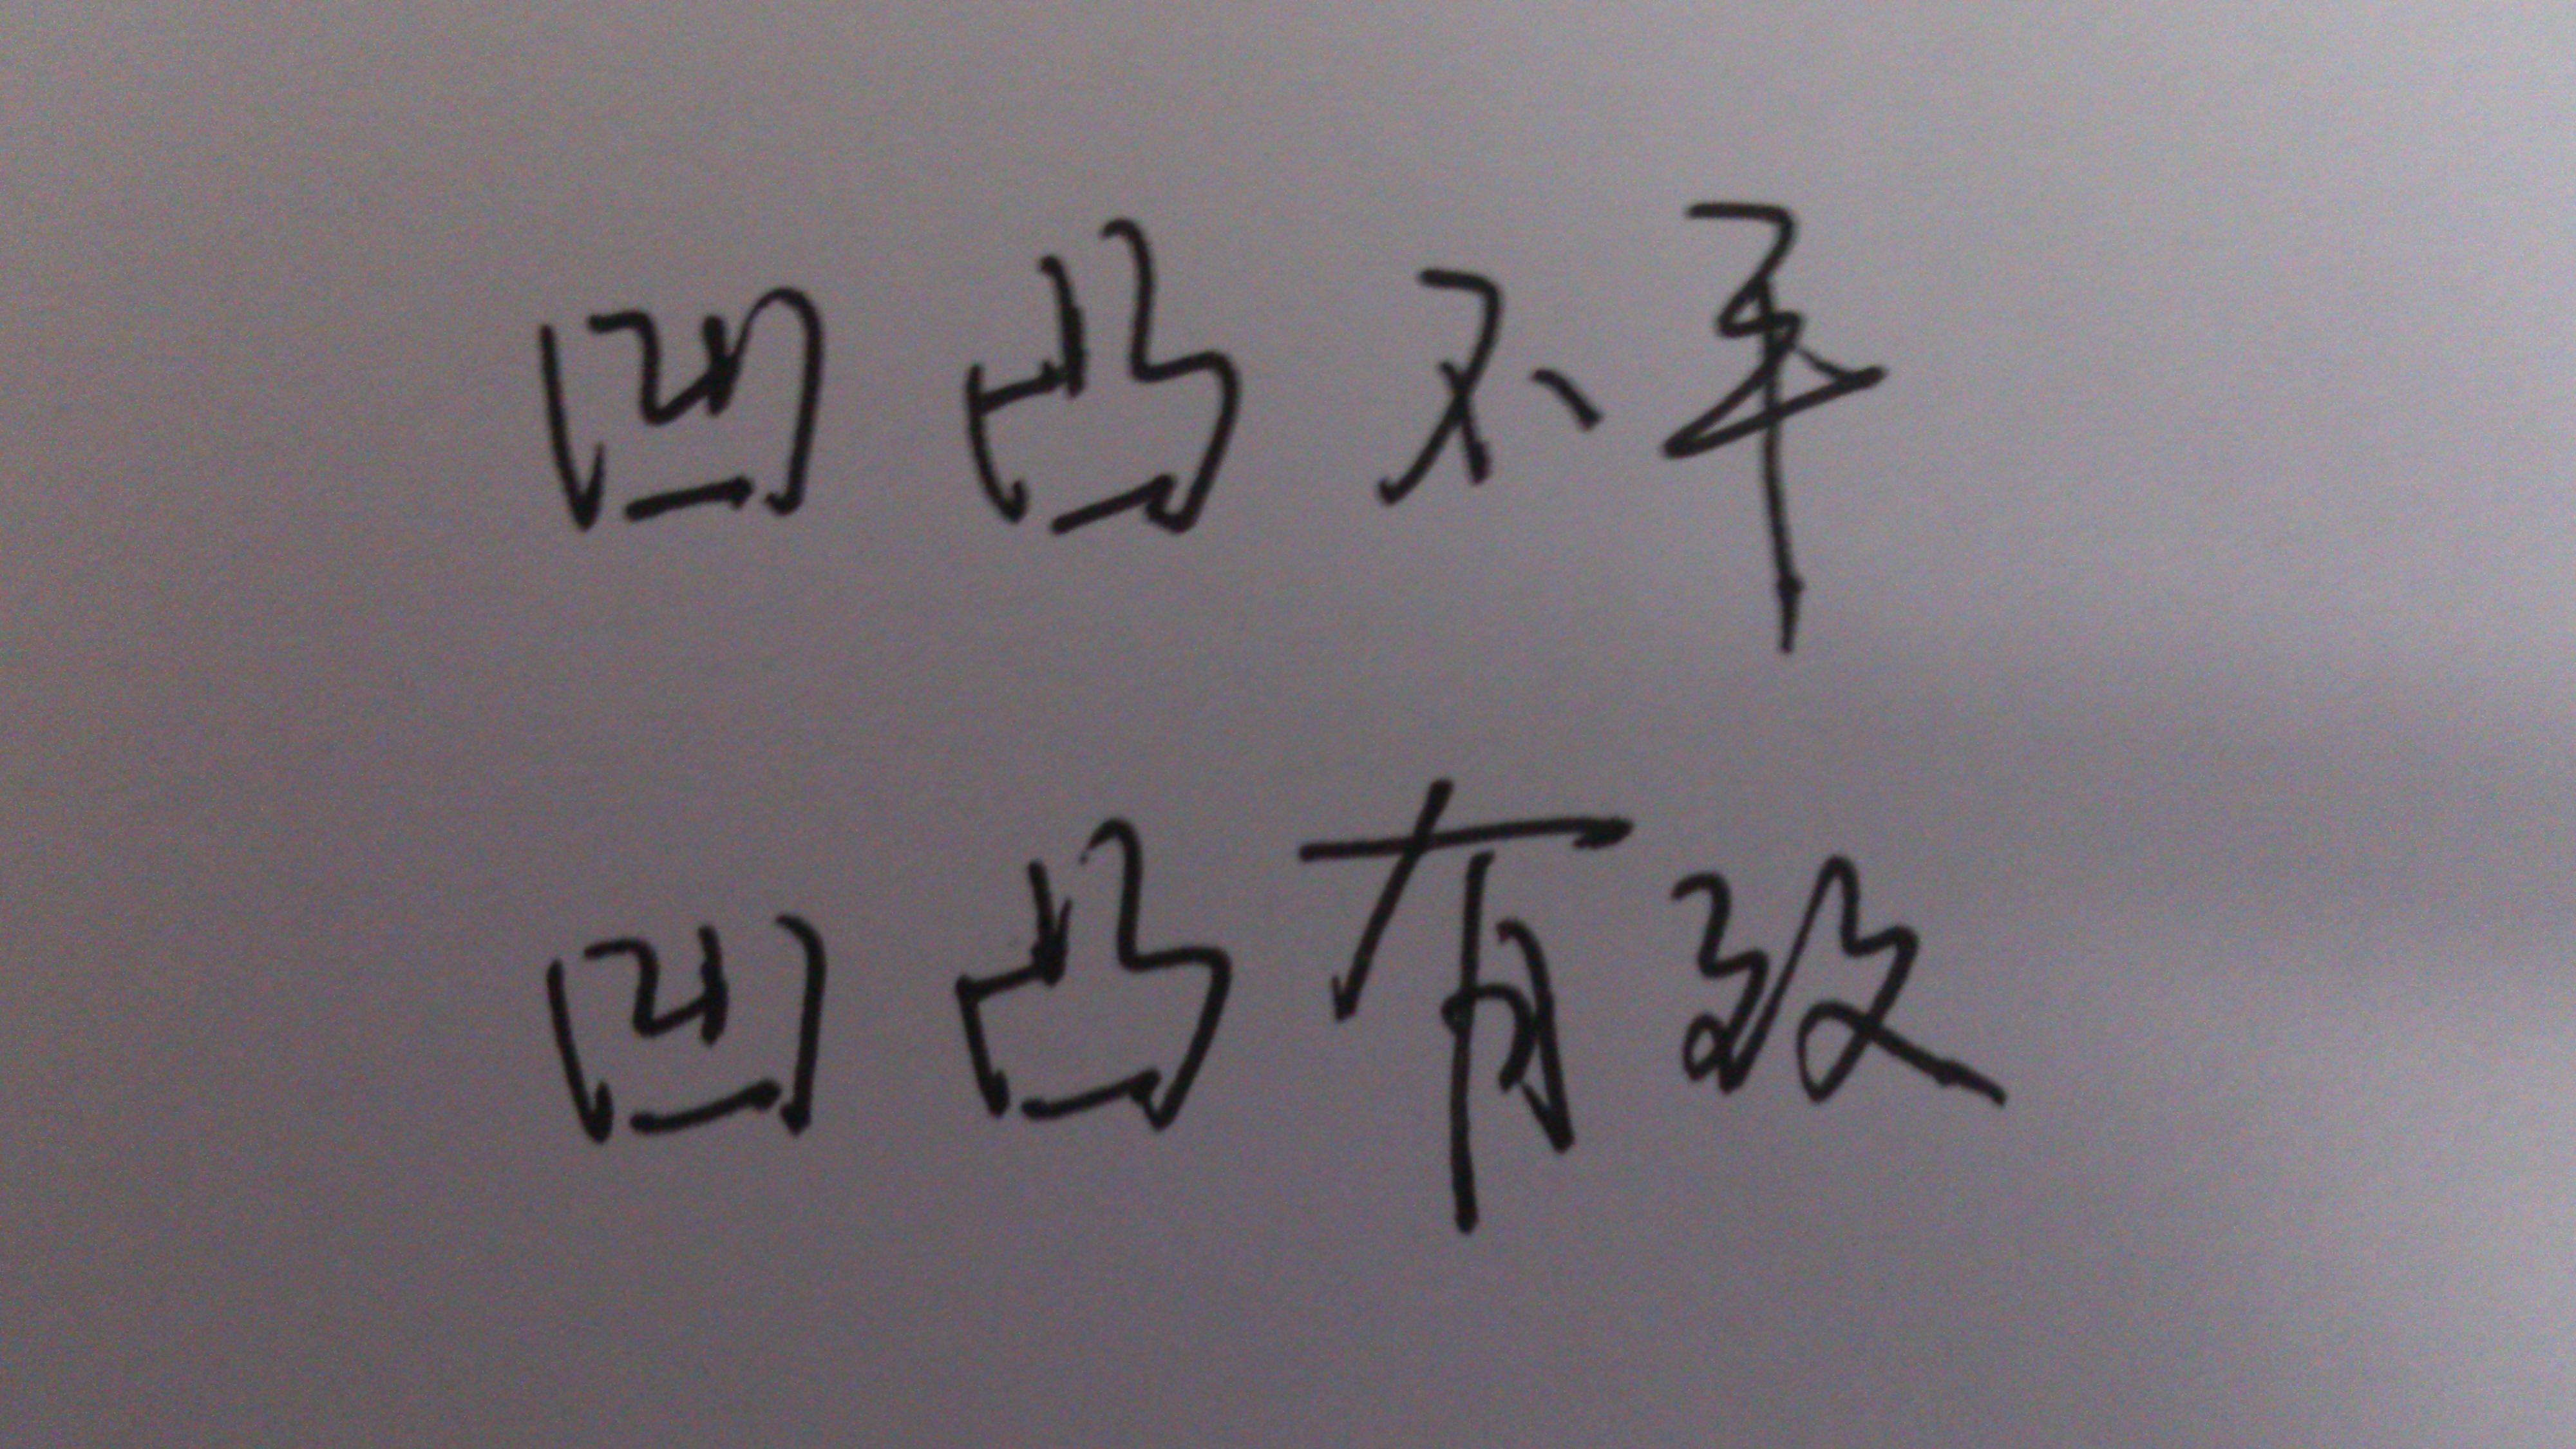 凹凸不平
凹凸有致